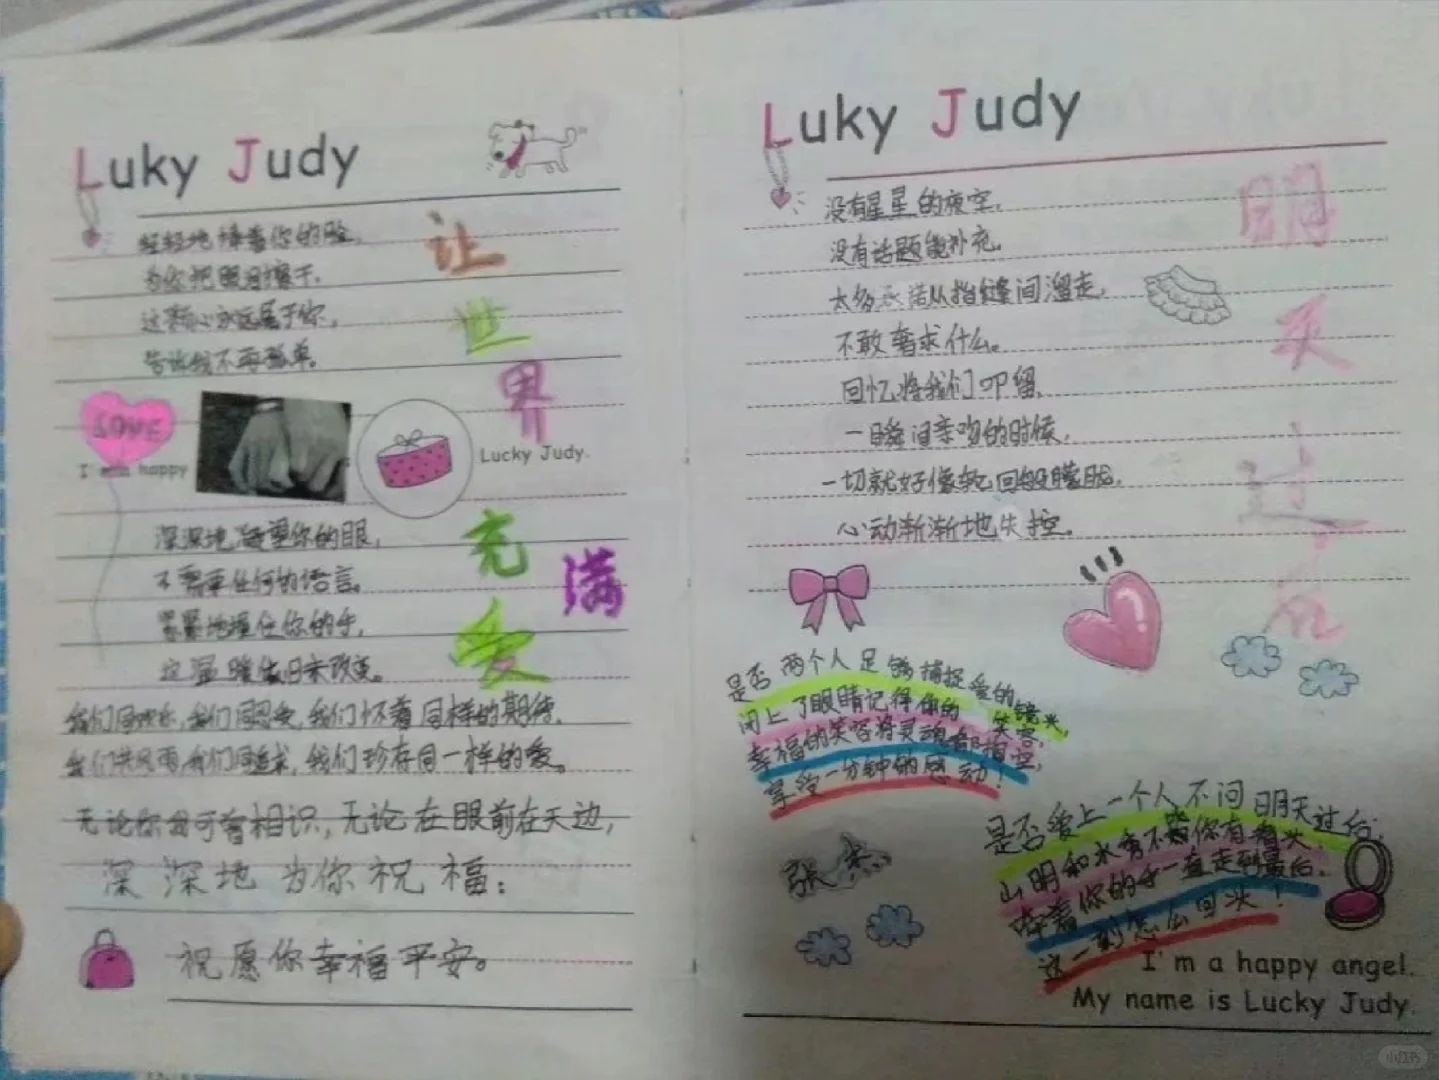 Luky Judy
轻轻地捧着你的脸,
为你把眼泪擦干,
这颗心永远属于你,
告诉我不再孤单。
让
世
界
LOVE
I'm a happy
Lucky Judy.
深深地凝望你的眼,
不需要任何的语言。
紧紧地握住你的手,
这温暖依旧未改变。
充
满
爱
我们同欢乐,我们同忍受,我们怀着同样的期待,
我们共风雨,我们同追求,我们珍存同一样的爱。
无论你我可曾相识,无论在眼前在天边,
深深地为你祝福:
祝愿你幸福平安。
Luky Judy
没有星星的夜空,
没有话题能补充。
太多承诺从指缝间溜走,
不敢奢求什么。
回忆将我们叩留,
一瞬间亲吻的时候,
一切就好像轮回般朦胧,
心动渐渐地失控。
明
天
过
后
是否两个人足够捕捉爱的镜头,
闭上了眼睛记得你的笑容,
幸福的笑容将灵魂都掏空,
享受一分钟的感动!
是否爱上一个人不问明天过后,
山明和水秀不比你有看头,
牵着你的手一直走到最后,
这一刻怎么回头!
张杰
I'm a happy angel.
My name is Lucky Judy.
小红书